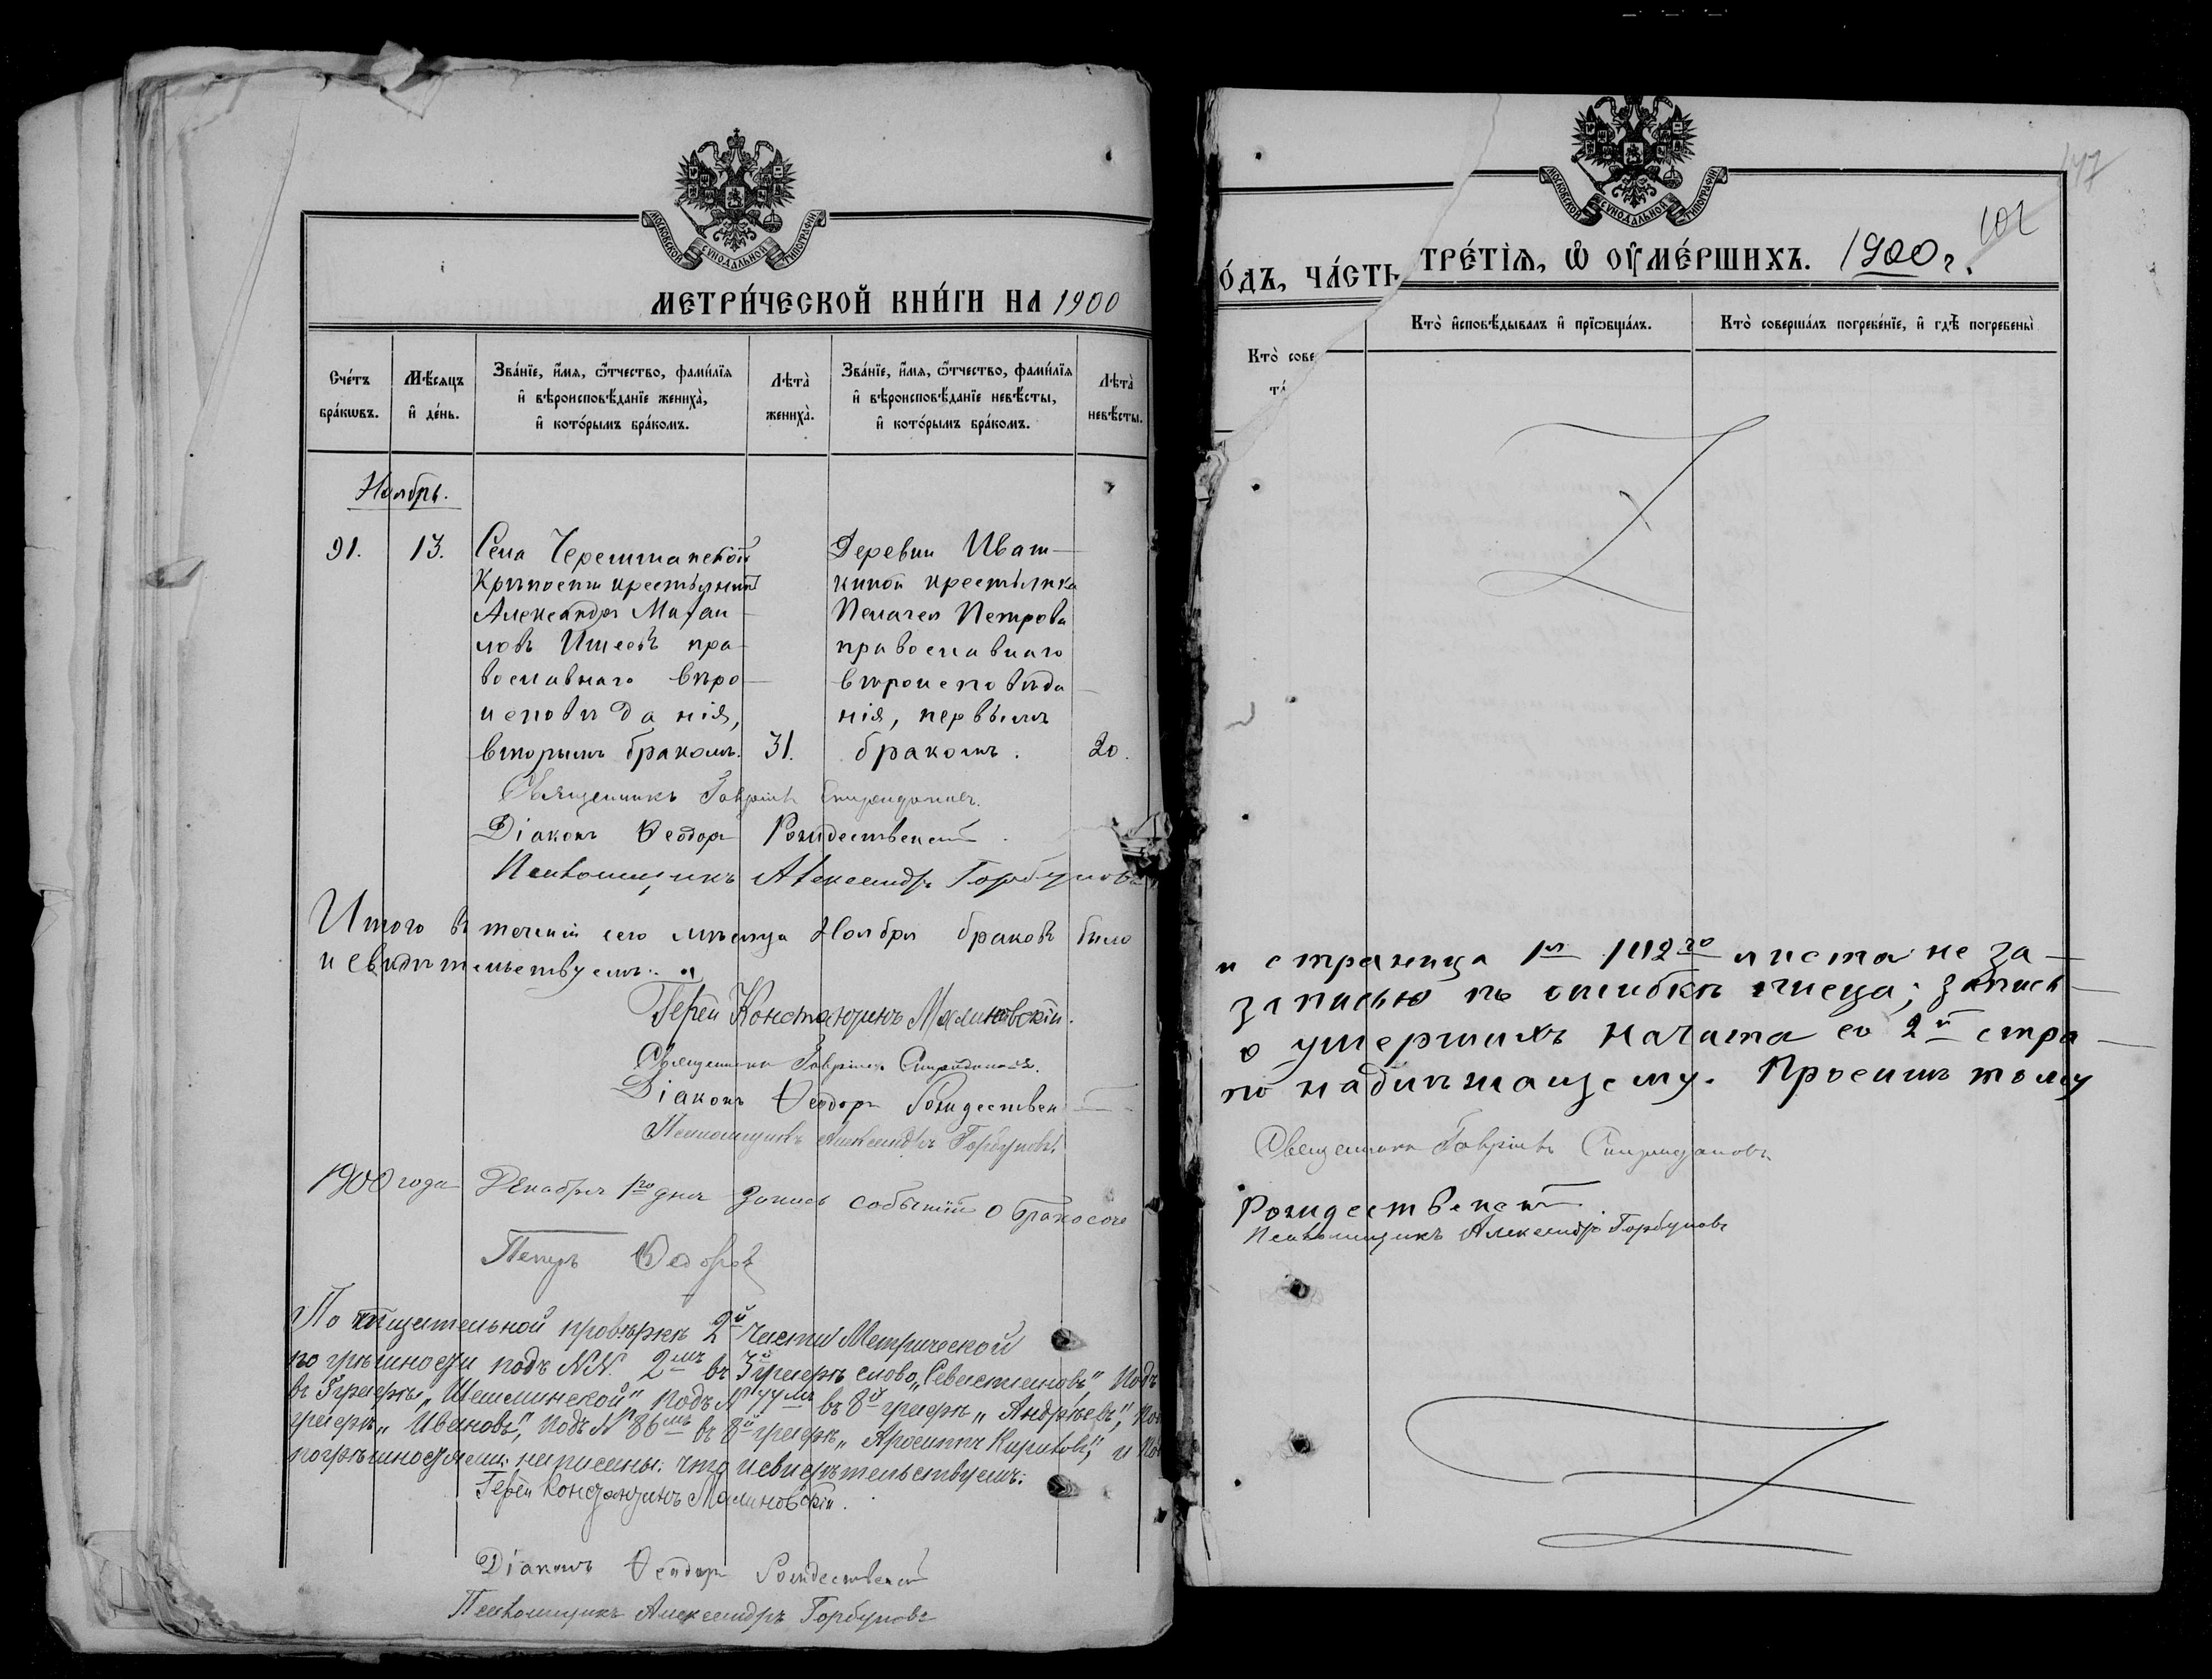 МОСКОВСКОЙ СѴНОДАЛЬНОЙ ТИПОГРАФІИ
МЕТРИ́ЧЕСКОЙ КНИ́ГИ НА 1900
Сче́тъ бра́кѡвъ.
Мѣ́сяцъ и҆ де́нь.
Зва́нїе, и҆́мя, ѻ҆́тчество, фами́лїя и҆ вѣроисповѣ́данїе жениха̀, и҆ кото́рымъ бра́комъ.
Лѣта̀ жениха̀.
Зва́нїе, и҆́мя, ѻ҆́тчество, фами́лїя и҆ вѣроисповѣ́данїе невѣ́сты, и҆ кото́рымъ бра́комъ.
Лѣта̀ невѣ́сты.
Ноябрь.
91. 13.
Села Черемшанской
Крѣпости крестьянинъ
Александръ Михаи-
ловъ Ишеевъ пра-
вославнаго вѣро-
исповѣданія,
вторымъ бракомъ. 31.
Деревни Иваш-
киной крестьянка
Пелагея Петрова
православнаго
вѣроисповѣда-
нія, первымъ
бракомъ. 20.
Священникъ Гавріилъ Спиридоновъ.
Діаконъ Ѳеодоръ Рождественскій
Псаломщикъ Александръ Горбуновъ
Итого въ теченіи сего мѣсяца Ноября браковъ было
и свидѣтельствуемъ:
Іерей Константинъ Малиновскій.
Священникъ Гавріилъ Спиридоновъ.
Діаконъ Ѳеодоръ Рождествен
Псаломщикъ Александръ Горбуновъ
1900 года Декабря 1го дня запись событій о бракосоче
Петръ Ѳедоровъ
По тщательной провѣркѣ 2й части Метрической
погрѣшности подъ №№. 2мъ въ 3й графѣ слово „Севастьяновъ", Подъ
въ 3 графѣ „Шешминской" подъ № 77мъ въ 8й графѣ „Андрѣевъ", По
графѣ „Ивановъ", подъ № 86мъ въ 8й графѣ „ Кириловъ", и По
погрѣшностями написаны. что и свидѣтельствуемъ:
Іерей Константинъ Малиновскій.
Діаконъ Ѳеодоръ Рождественскій
Псаломщикъ Александръ Горбуновъ
147
МОСКОВСКОЙ СѴНОДАЛЬНОЙ ТИПОГРАФІИ
О́ДЪ, ЧА́СТЬ ТРЕ́ТІѦ, Ѡ҆ ОУ҆МЕ́РШИХЪ. 1900 г.
Кто̀ сове
Кто̀ и҆сповѣ́дывалъ и҆ прїѡбща́лъ.
Кто̀ соверша́лъ погребе́нїе, и҆ гдѣ̀ погребены̀
и страница 1я 102го листа не за-
записью по ошибкѣ писца; запись
о умершихъ начата со 2й стра-
по надлежащему. Просимъ тому
Священникъ Гавріилъ Спиридоновъ
Рождественскій.
Псаломщикъ Александръ Горбуновъ